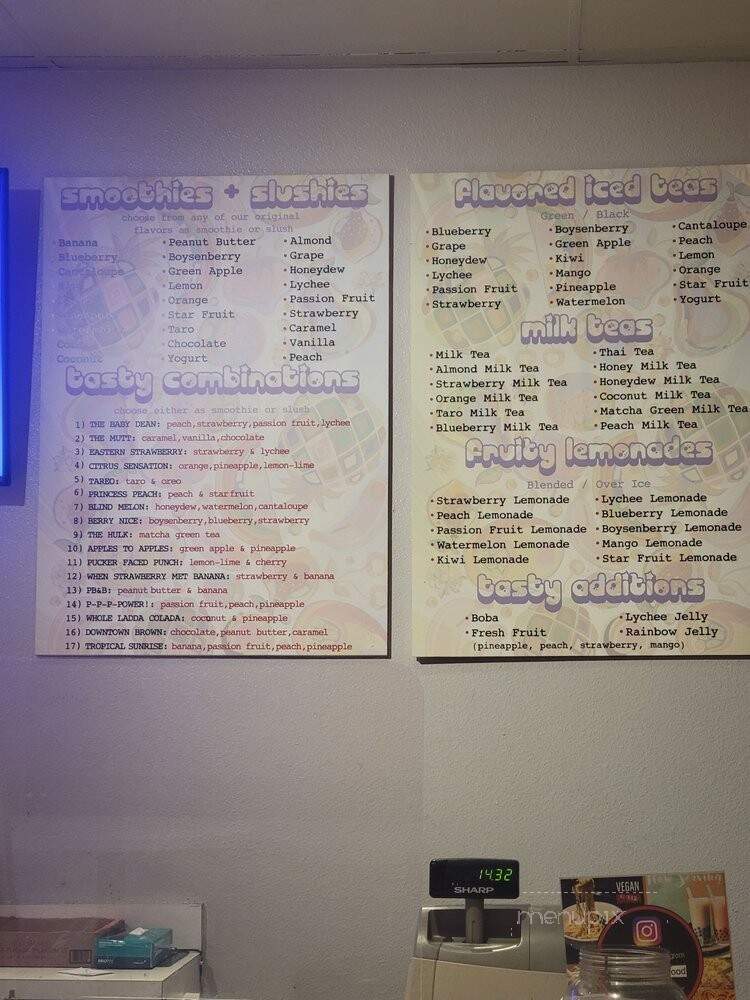 smoothies + slushies
choose from any of our original
flavors as smoothie or slush
• Banana
Blueberry
Cantaloupe
Coconut
• Peanut Butter
• Boysenberry
• Green Apple
• Lemon
• Orange
• Star Fruit
• Taro
• Chocolate
• Yogurt
• Almond
• Grape
• Honeydew
• Lychee
• Passion Fruit
• Strawberry
• Caramel
• Vanilla
• Peach
tasty combinations
choose either as smoothie or slush
1) THE BABY DEAN: peach,strawberry,passion fruit,lychee
2) THE MUTT: caramel,vanilla,chocolate
3) EASTERN STRAWBERRY: strawberry & lychee
4) CITRUS SENSATION: orange,pineapple,lemon-lime
5) TAREO: taro & oreo
6) PRINCESS PEACH: peach & starfruit
7) BLIND MELON: honeydew,watermelon,cantaloupe
8) BERRY NICE: boysenberry,blueberry,strawberry
9) THE HULK: matcha green tea
10) APPLES TO APPLES: green apple & pineapple
11) PUCKER FACED PUNCH: lemon-lime & cherry
12) WHEN STRAWBERRY MET BANANA: strawberry & banana
13) PB&B: peanut butter & banana
14) P-P-P-POWER!: passion fruit,peach,pineapple
15) WHOLE LADDA COLADA: coconut & pineapple
16) DOWNTOWN BROWN: chocolate,peanut butter,caramel
17) TROPICAL SUNRISE: banana,passion fruit,peach,pineapple
flavored iced teas
Green / Black
• Blueberry
• Grape
• Honeydew
• Lychee
• Passion Fruit
• Strawberry
• Boysenberry
• Green Apple
• Kiwi
• Mango
• Pineapple
• Watermelon
• Cantaloupe
• Peach
• Lemon
• Orange
• Star Fruit
• Yogurt
milk teas
• Milk Tea
• Almond Milk Tea
• Strawberry Milk Tea
• Orange Milk Tea
• Taro Milk Tea
• Blueberry Milk Tea
• Thai Tea
• Honey Milk Tea
• Honeydew Milk Tea
• Coconut Milk Tea
• Matcha Green Milk Tea
• Peach Milk Tea
fruity lemonades
Blended / Over Ice
• Strawberry Lemonade
• Peach Lemonade
• Passion Fruit Lemonade
• Watermelon Lemonade
• Kiwi Lemonade
• Lychee Lemonade
• Blueberry Lemonade
• Boysenberry Lemonade
• Mango Lemonade
• Star Fruit Lemonade
tasty additions
• Boba
• Fresh Fruit
(pineapple, peach, strawberry, mango)
• Lychee Jelly
• Rainbow Jelly
14.32
SHARP
VEGAN
menupix
ood